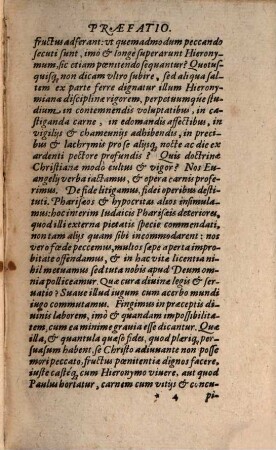 PRÆFATIO.
fructus adferant: vt quemadmodum peccando
secuti sunt, imò & longè superarunt Hierony-
mum, sic etiam pœnitendo sequantur? Quotus-
quisq́, non dicam vltro subire, sed aliqua sal-
tem ex parte ferre dignatur illum Hierony-
miana disciplinæ rigorem, perpetuumq́ue stu-
dium, in contemnendis voluptatibus, in ca-
stiganda carne, in edomandis affectibus, in
vigilijs & chameunijs adhibendis, in preci-
bus & lachrymis prose alijsq́, nocte ac die ex
ardenti pectore profundis? Quis doctrinæ
Christianæ modò cultus & vigor? Nos Eu-
angelij verba iactamus, & opera carnis profe-
rimus. De fide litigamus, fidei operibus desti-
tuti. Pharisæos & hypocritas alios insimula-
mus: hoc interim Iudaicis Pharisæis deteriores,
quod illi externa pietatis specie commendati,
non tam alijs quam sibi incommodarent: nos
vero fœdè peccemus, multos sæpe aperta impro-
bitate offendamus, & in hac vitæ licentia ni-
hil metuamus sed tuta nobis apud Deum om-
nia polliceamur. Quæ cura diuinæ legis & ser-
uatio? Suaue illud iugum cum acerbo mundi
iugo commutamus. Fingimus in præceptis di-
uinis laborem, imò & quandam impossibilita-
tem, cum ea minimè grauia esse dicantur. Quæ
illa, & quantula quæso fides, quod pleriq́, per-
suasum habent, se Christo adiuuante non posse
mori peccato, fructus pœnitentiæ dignos facere,
iustè castéq́, cum Hieronymo viuere, aut quod
Paulus hortatur, carnem cum vitijs & concu-
* 4 pi-